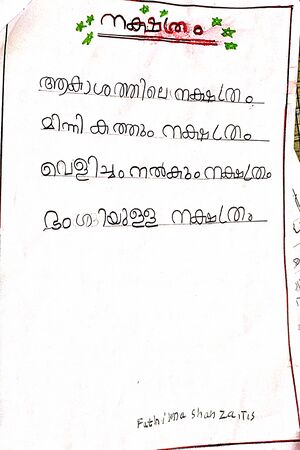 നക്ഷത്രം
ആകാശത്തിലെ നക്ഷത്രം
മിന്നി കത്തും നക്ഷത്രം
വെളിച്ചം നൽകും നക്ഷത്രം
ഭംഗിയുള്ള നക്ഷത്രം
Fathima Shanza